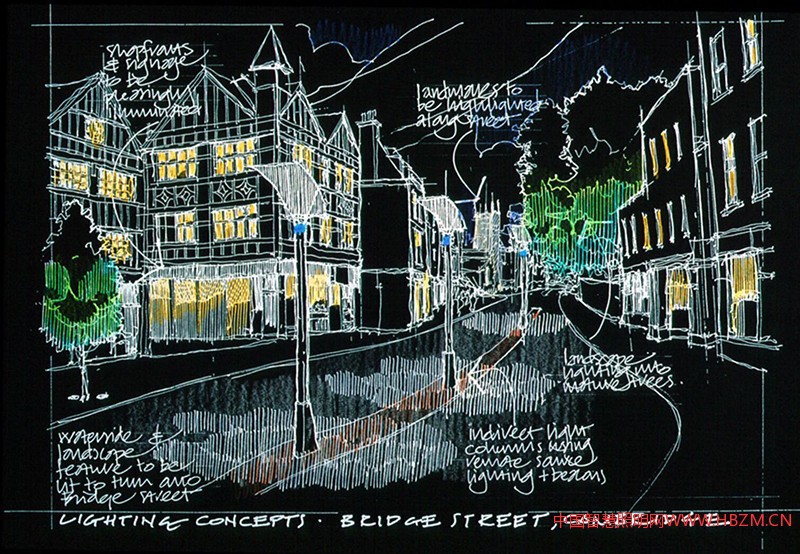 shopfronts
& signage
to be
illuminated
landmarks to
be highlighted
along street
landscape
lighting into
mature trees.
indirect light
columns using
remote source
lighting + beacons
waterside &
landscape
feature to be
lit to turn into
Bridge Street
LIGHTING CONCEPTS · BRIDGE STREET,
中国智慧照明网WWW.HBZM.CN